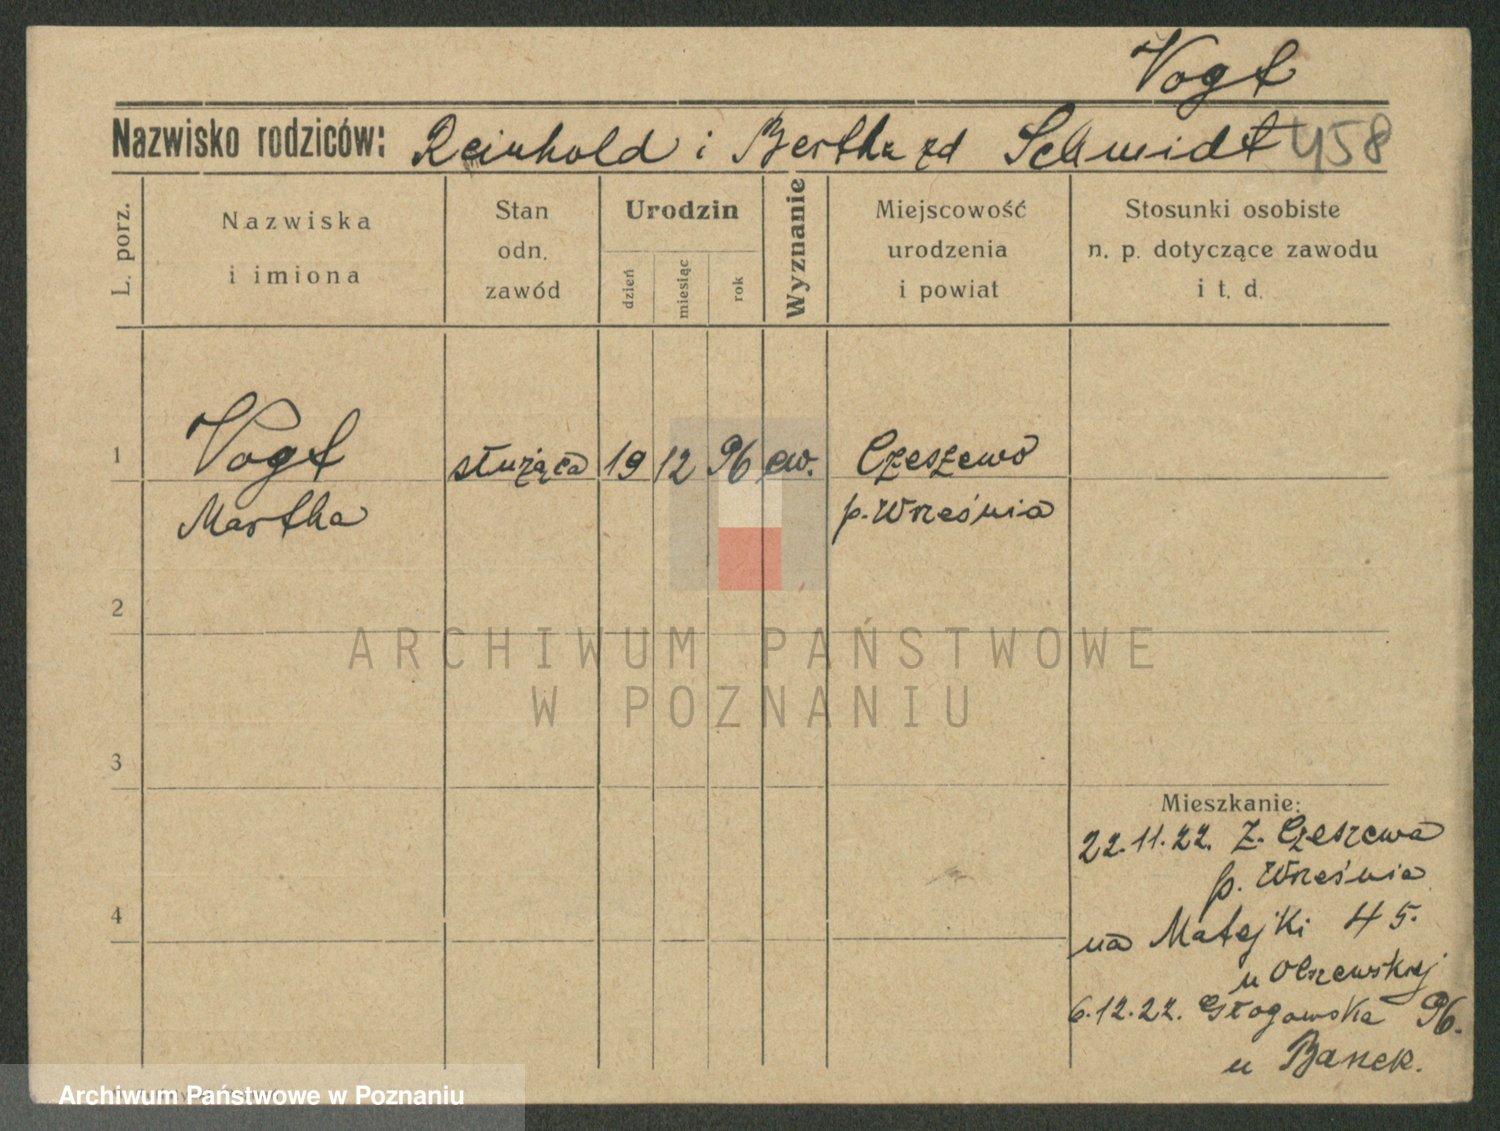 Vogt
Nazwisko rodziców: Reinhold i Bertha zd Schmidt 458
L. porz.
Nazwiska
i imiona
Stan
odn.
zawód
Urodzin
dzień
miesiąc
rok
Wyznanie
Miejscowość
urodzenia
i powiat
Stosunki osobiste
n. p. dotyczące zawodu
i t. d.
1 Vogt służąca 19 12 96 ew. Czeszewo
Martha p. Września
2
ARCHIWUM PAŃSTWOWE
W POZNANIU
3
Mieszkanie:
22.11.22. Z. Czeszewa
p. Września
4
na Matejki 45.
u Olszewskiej
6.12.22. Głogowska 96.
u Banek.
Archiwum Państwowe w Poznaniu